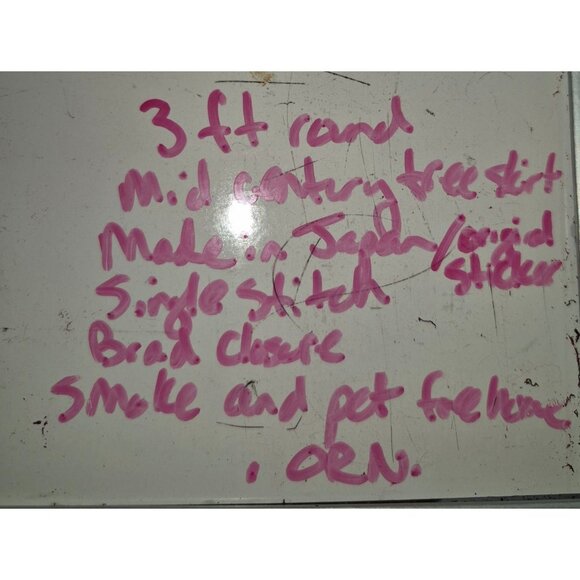 3 ft round
Mid century tree skirt
Made in Japan/
sticker
Single stitch
Brad closure
Smoke and pet free home
. ORN.